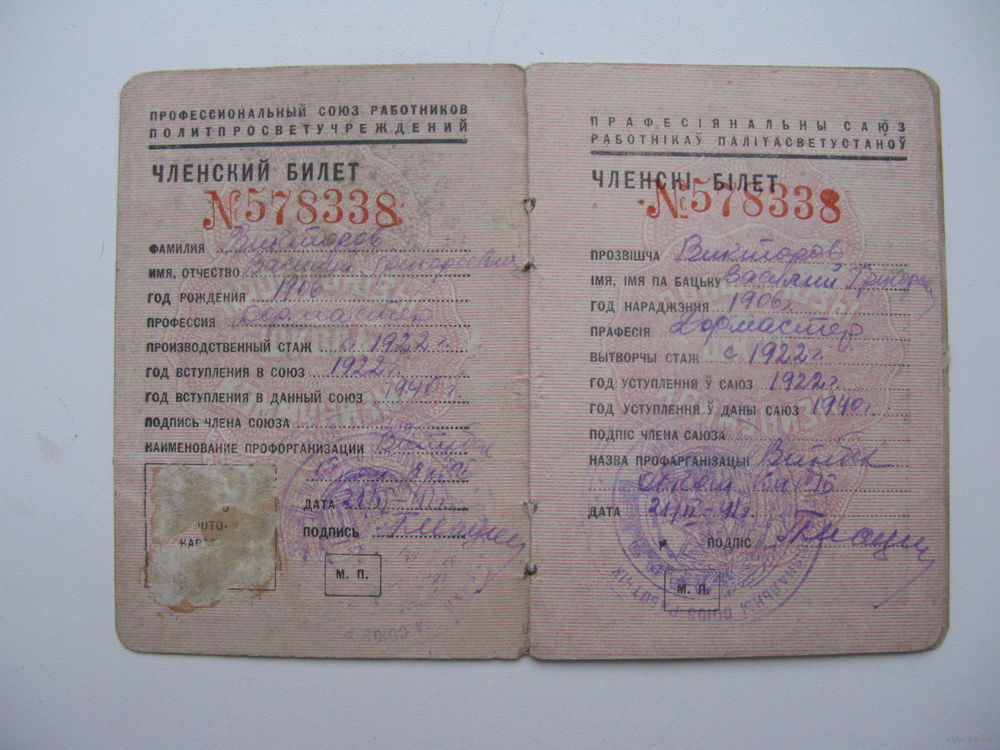 ПРОФЕССИОНАЛЬНЫЙ СОЮЗ РАБОТНИКОВ
ПОЛИТПРОСВЕТУЧРЕЖДЕНИЙ
ЧЛЕНСКИЙ БИЛЕТ
№578338
ФАМИЛИЯ Викторов
ИМЯ, ОТЧЕСТВО Василий Григорьевич
ГОД РОЖДЕНИЯ 1906
ПРОФЕССИЯ Дормастер
ПРОИЗВОДСТВЕННЫЙ СТАЖ с 1922 г.
ГОД ВСТУПЛЕНИЯ В СОЮЗ 1922 г.
ГОД ВСТУПЛЕНИЯ В ДАННЫЙ СОЮЗ 1940 г.
ПОДПИСЬ ЧЛЕНА СОЮЗА
НАИМЕНОВАНИЕ ПРОФОРГАНИЗАЦИИ
ДАТА
ПОДПИСЬ
М. П.
ПРАФЕСІЯНАЛЬНЫ САЮЗ
РАБОТНІКАЎ ПАЛІТАСВЕТУСТАНОЎ
ЧЛЕНСКІ БІЛЕТ
№578338
ПРОЗВІШЧА Викторов
ІМЯ, ІМЯ ПА БАЦЬКУ Василий
ГОД НАРАДЖЭННЯ 1906 г.
ПРАФЕСІЯ Дормастер
ВЫТВОРЧЫ СТАЖ с 1922 г.
ГОД УСТУПЛЕННЯ Ў САЮЗ 1922 г.
ГОД УСТУПЛЕННЯ Ў ДАНЫ САЮЗ 1940 г.
ПОДПІС ЧЛЕНА САЮЗА
НАЗВА ПРАФАРГАНІЗАЦЫІ
ДАТА
ПОДПІС
М. П.